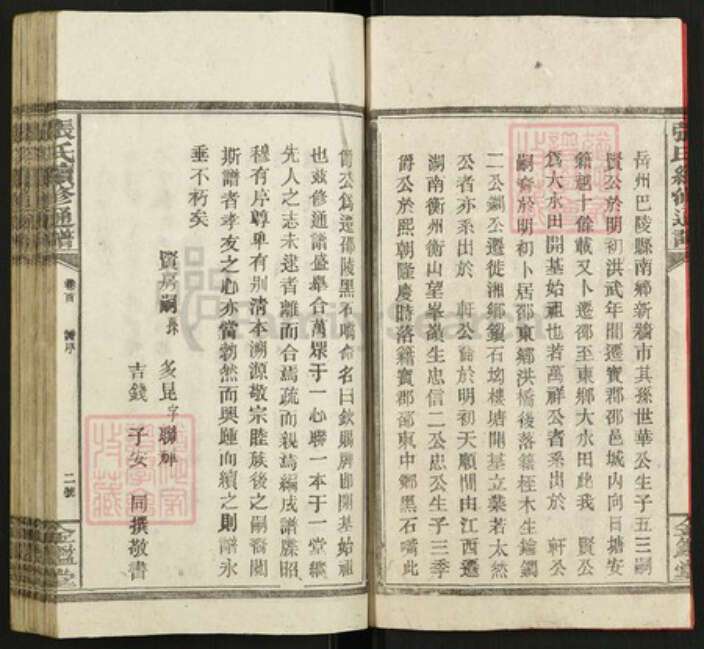 岳州巴陵縣南鄉新牆市其孫世華公生子五三嗣
賢公於明初洪武年間遷寶郡邵邑城內向日塘安
籍麗十餘載又卜遷邵至東鄉大水田此我 賢公
為大水田開基始祖也若萬祥公者系出於 軒公
嗣裔於明初卜居邵東鄉洪橋後落籍桎木生鑰鐗
二公鐗公遷徙湘鄉鐵石坳樓塘開基立業若太然
公者亦系出於 軒公裔於明初天順間由江西遷
湖南衡州衡山望峯嶺生忠信二公忠公生子三季
爵公於熙朝隆慶時落籍寶郡邵東中鄉黑石嘴此
爵公為遷邵陵黑石嘴命名曰欽賜牌即開基始祖
也茲修通譜盛舉合萬眾于一心聯一本于一堂纘
先人之志未逮者離而合焉疏而親焉編成譜牒昭
穆有序尊卑有別清本溯源敬宗睦族後之嗣裔閱
斯譜者孝友之心亦當勃然而興踵而續之則譜永
垂不朽矣
賢房嗣孫 多昆字聯輝
吉錢 子安 同撰敬書
張氏續修通譜
卷首 譜序
二號
金鑑堂